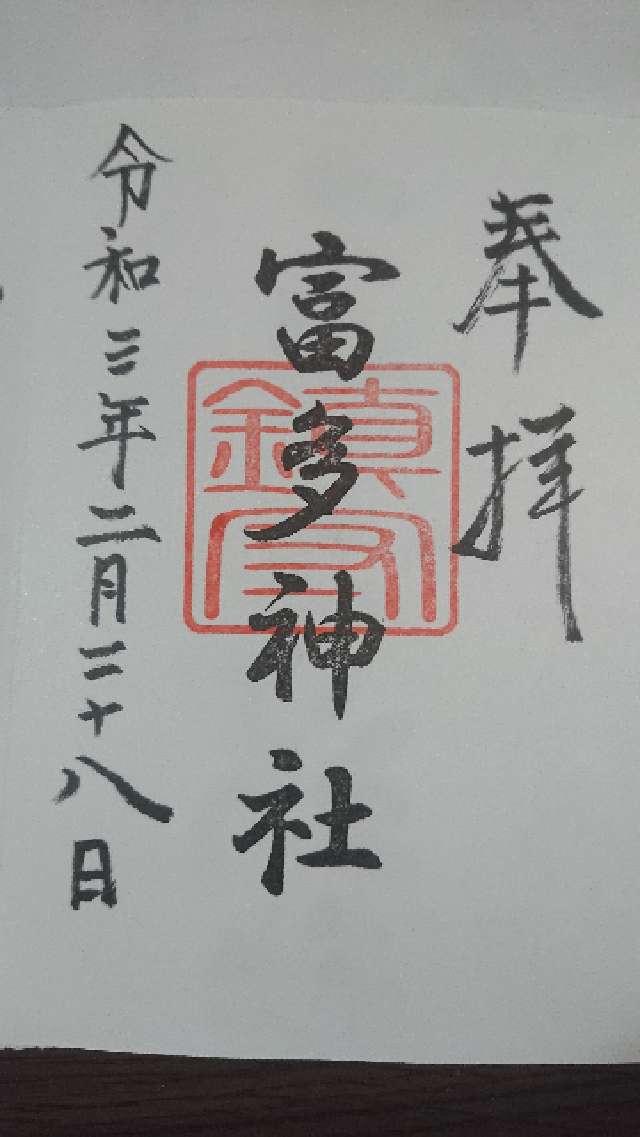 奉拝
富多神社
令和三年二月二十八日